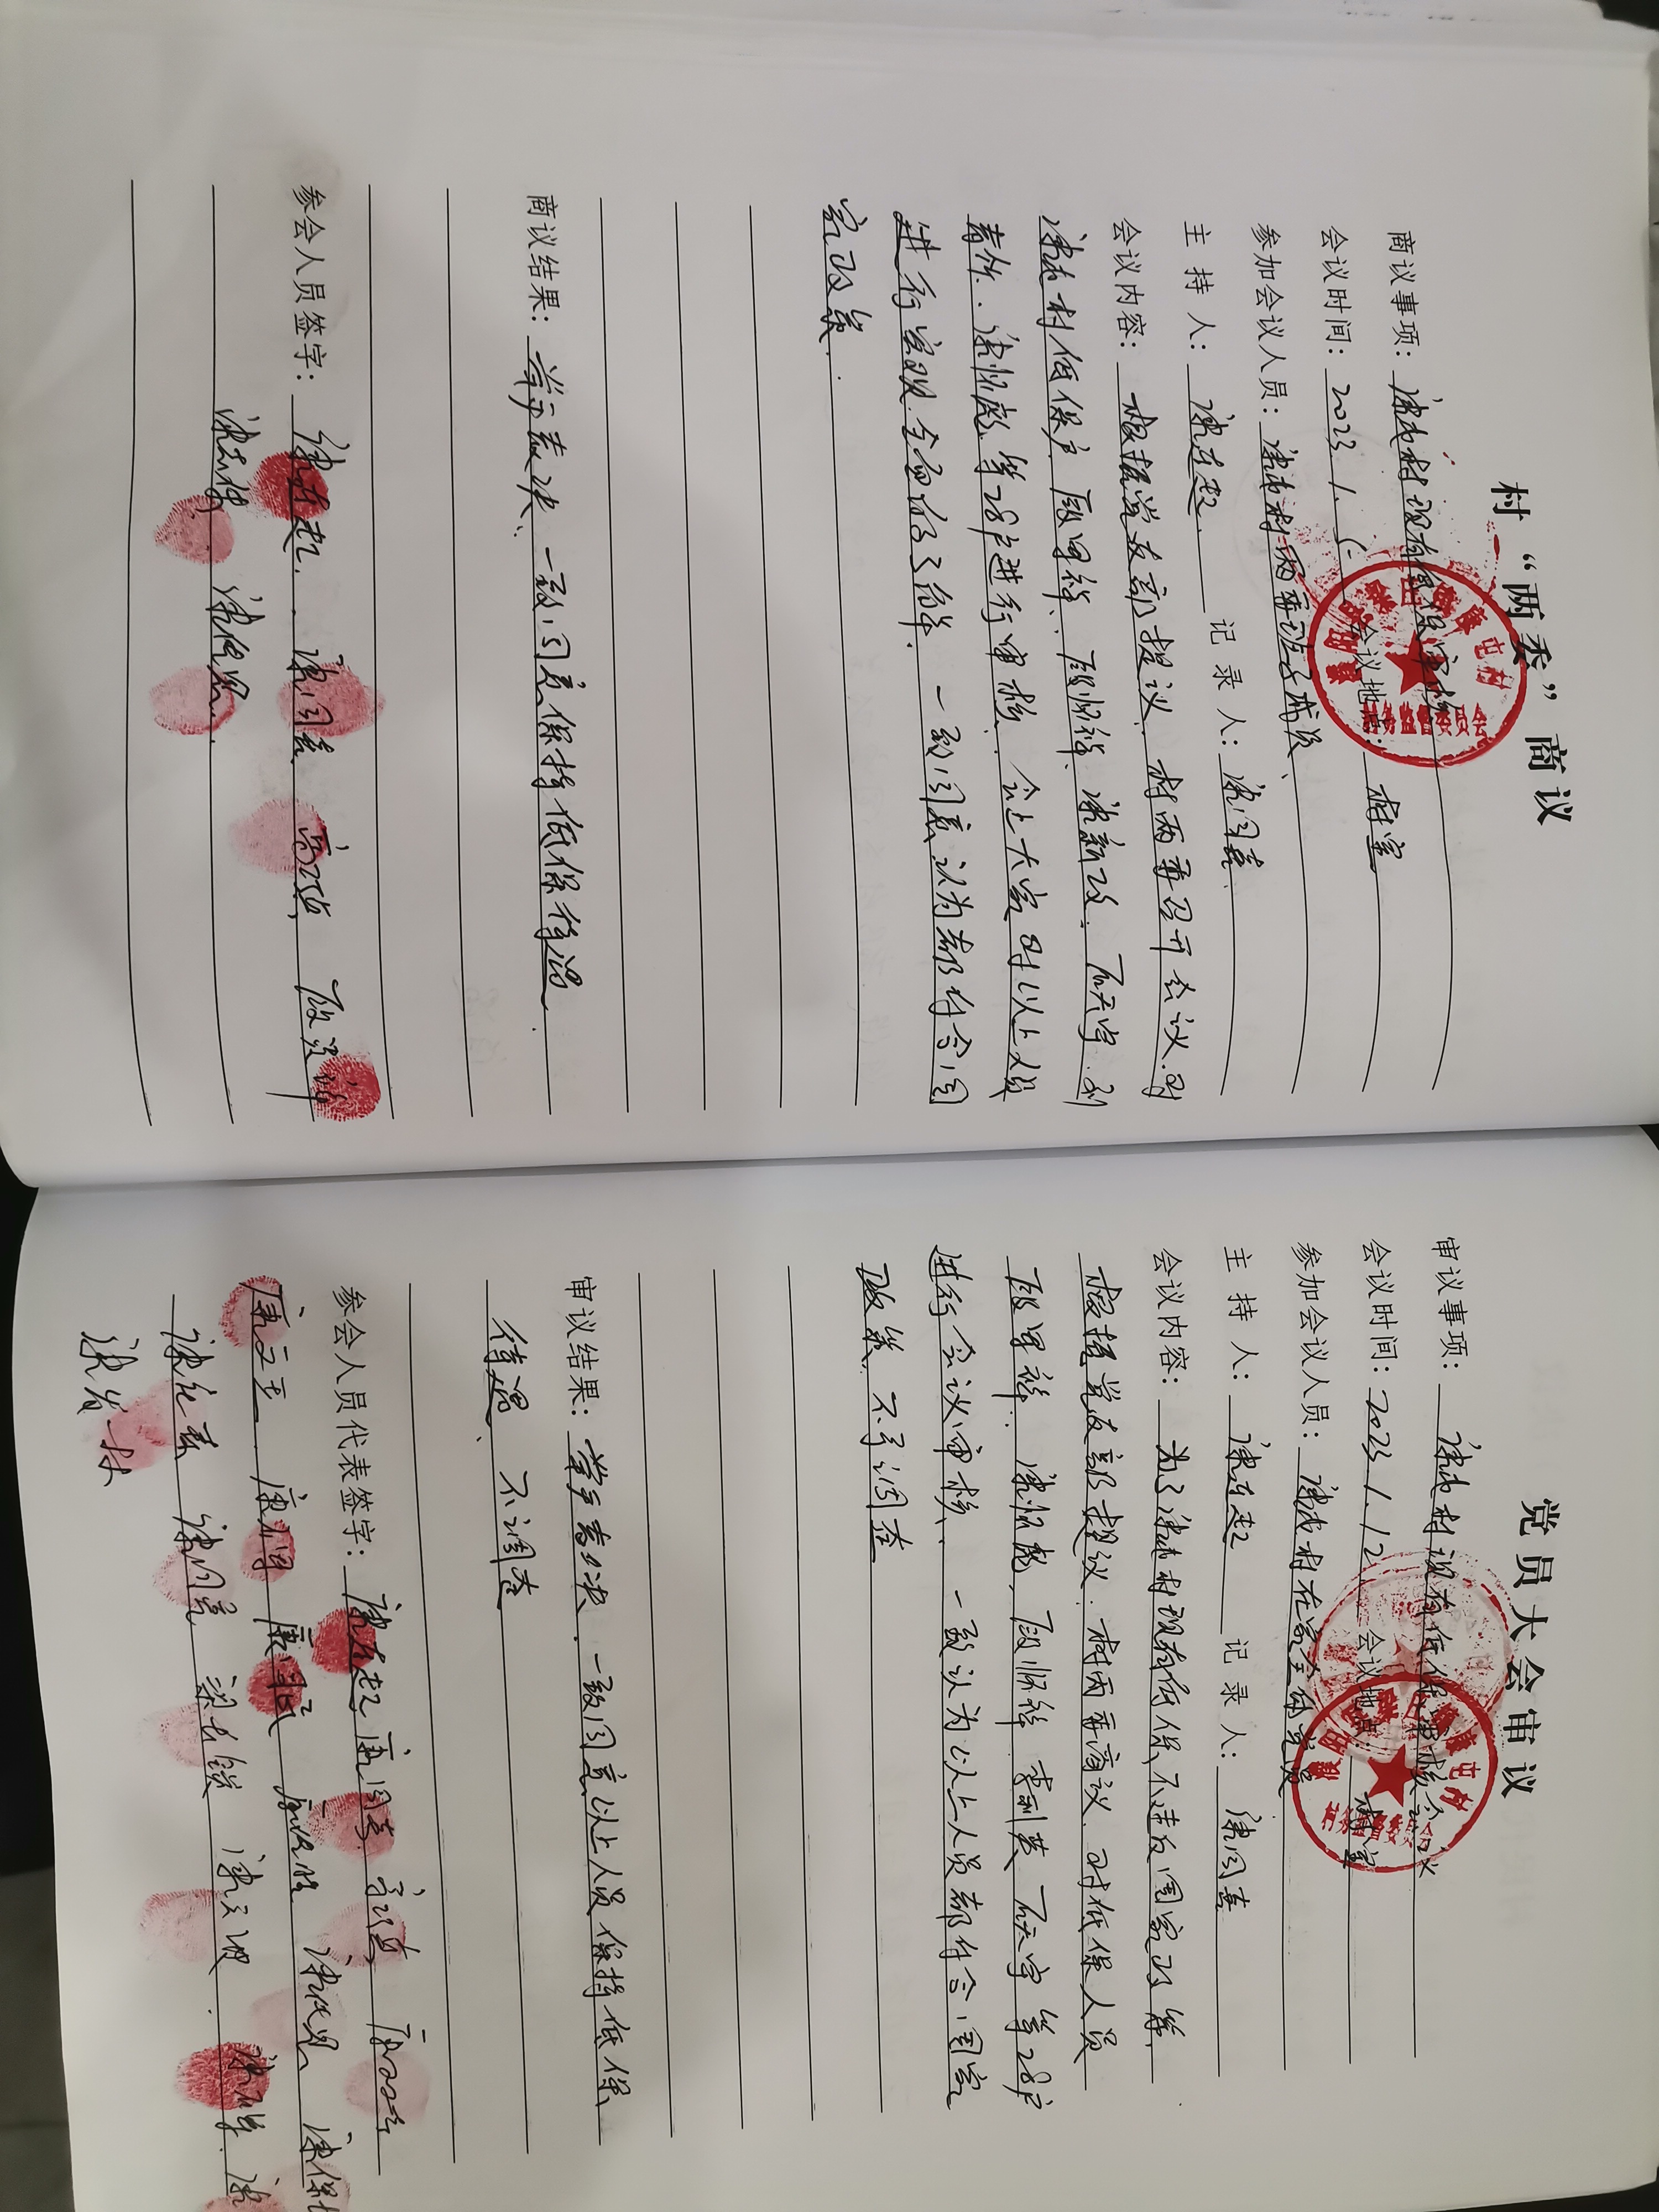 村“两委”商议
商议事项：康屯村现有低保审核
会议时间：2023.1.5 会议地点：村室
参加会议人员：康屯村两委班子成员
主持人：康连起 记录人：康同喜
会议内容：根据党支部提议，村两委召开会议，对
康屯村低保户 殷军祥、殷怀祥、康新政、石天宇、
康怀彪等28户进行审核，会上大家对以上人员
进行客观全面的了解，一致同意认为都付合国
家政策.
商议结果：举手表决，一致同意保持低保待遇
参会人员签字：康连起 康同喜 高巧兵
康传恩
党员大会审议
审议事项：康屯村现有低保审核会议
会议时间：2023.1.12 会议地点：村室
参加会议人员：康屯村在家全体党员
主持人：康连起 记录人：康同喜
会议内容：为了康屯村现有低保不违反国家政策，
根据党支部提议，村两委商议，对低保人员
殷军祥、康怀彪、殷怀祥、李利英 石天宇等28户
进行会议审核，一致认为以上人员都付合国家
政策，不予调查
审议结果：举手表决，一致同意以上人员保持低保
待遇、不调查
参会人员代表签字：康连起 康同喜 高巧兵
康文王 康同民 康传恩
康同亮 梁长锁